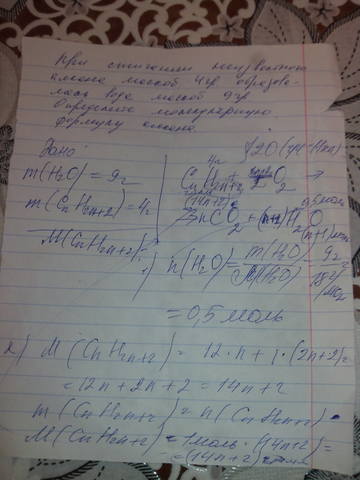 При сжигании неизвестного
алкана массой 4гр образова-
лась вода массой 9гр
Определите молекулярную
формулу алкана.
Дано:
m(H2O) = 9г
m(CnH2n+2) = 4г
M(CnH2n+2)-
4г
CnH2n+2 + O2 →
(14n+2)г
0,5моль
2nCO2 + (n+1)H2O
(n+1)моль
1) n(H2O) = m(H2O) / M(H2O) 9г
= 0,5 моль
2) M(CnH2n+2) = 12·n + 1·(2n+2) =
= 12n + 2n + 2 = 14n + 2
m(CnH2n+2) = n(CnH2n+2) ·
M(CnH2n+2) = 1моль · (14n+2) =
= (14n+2)